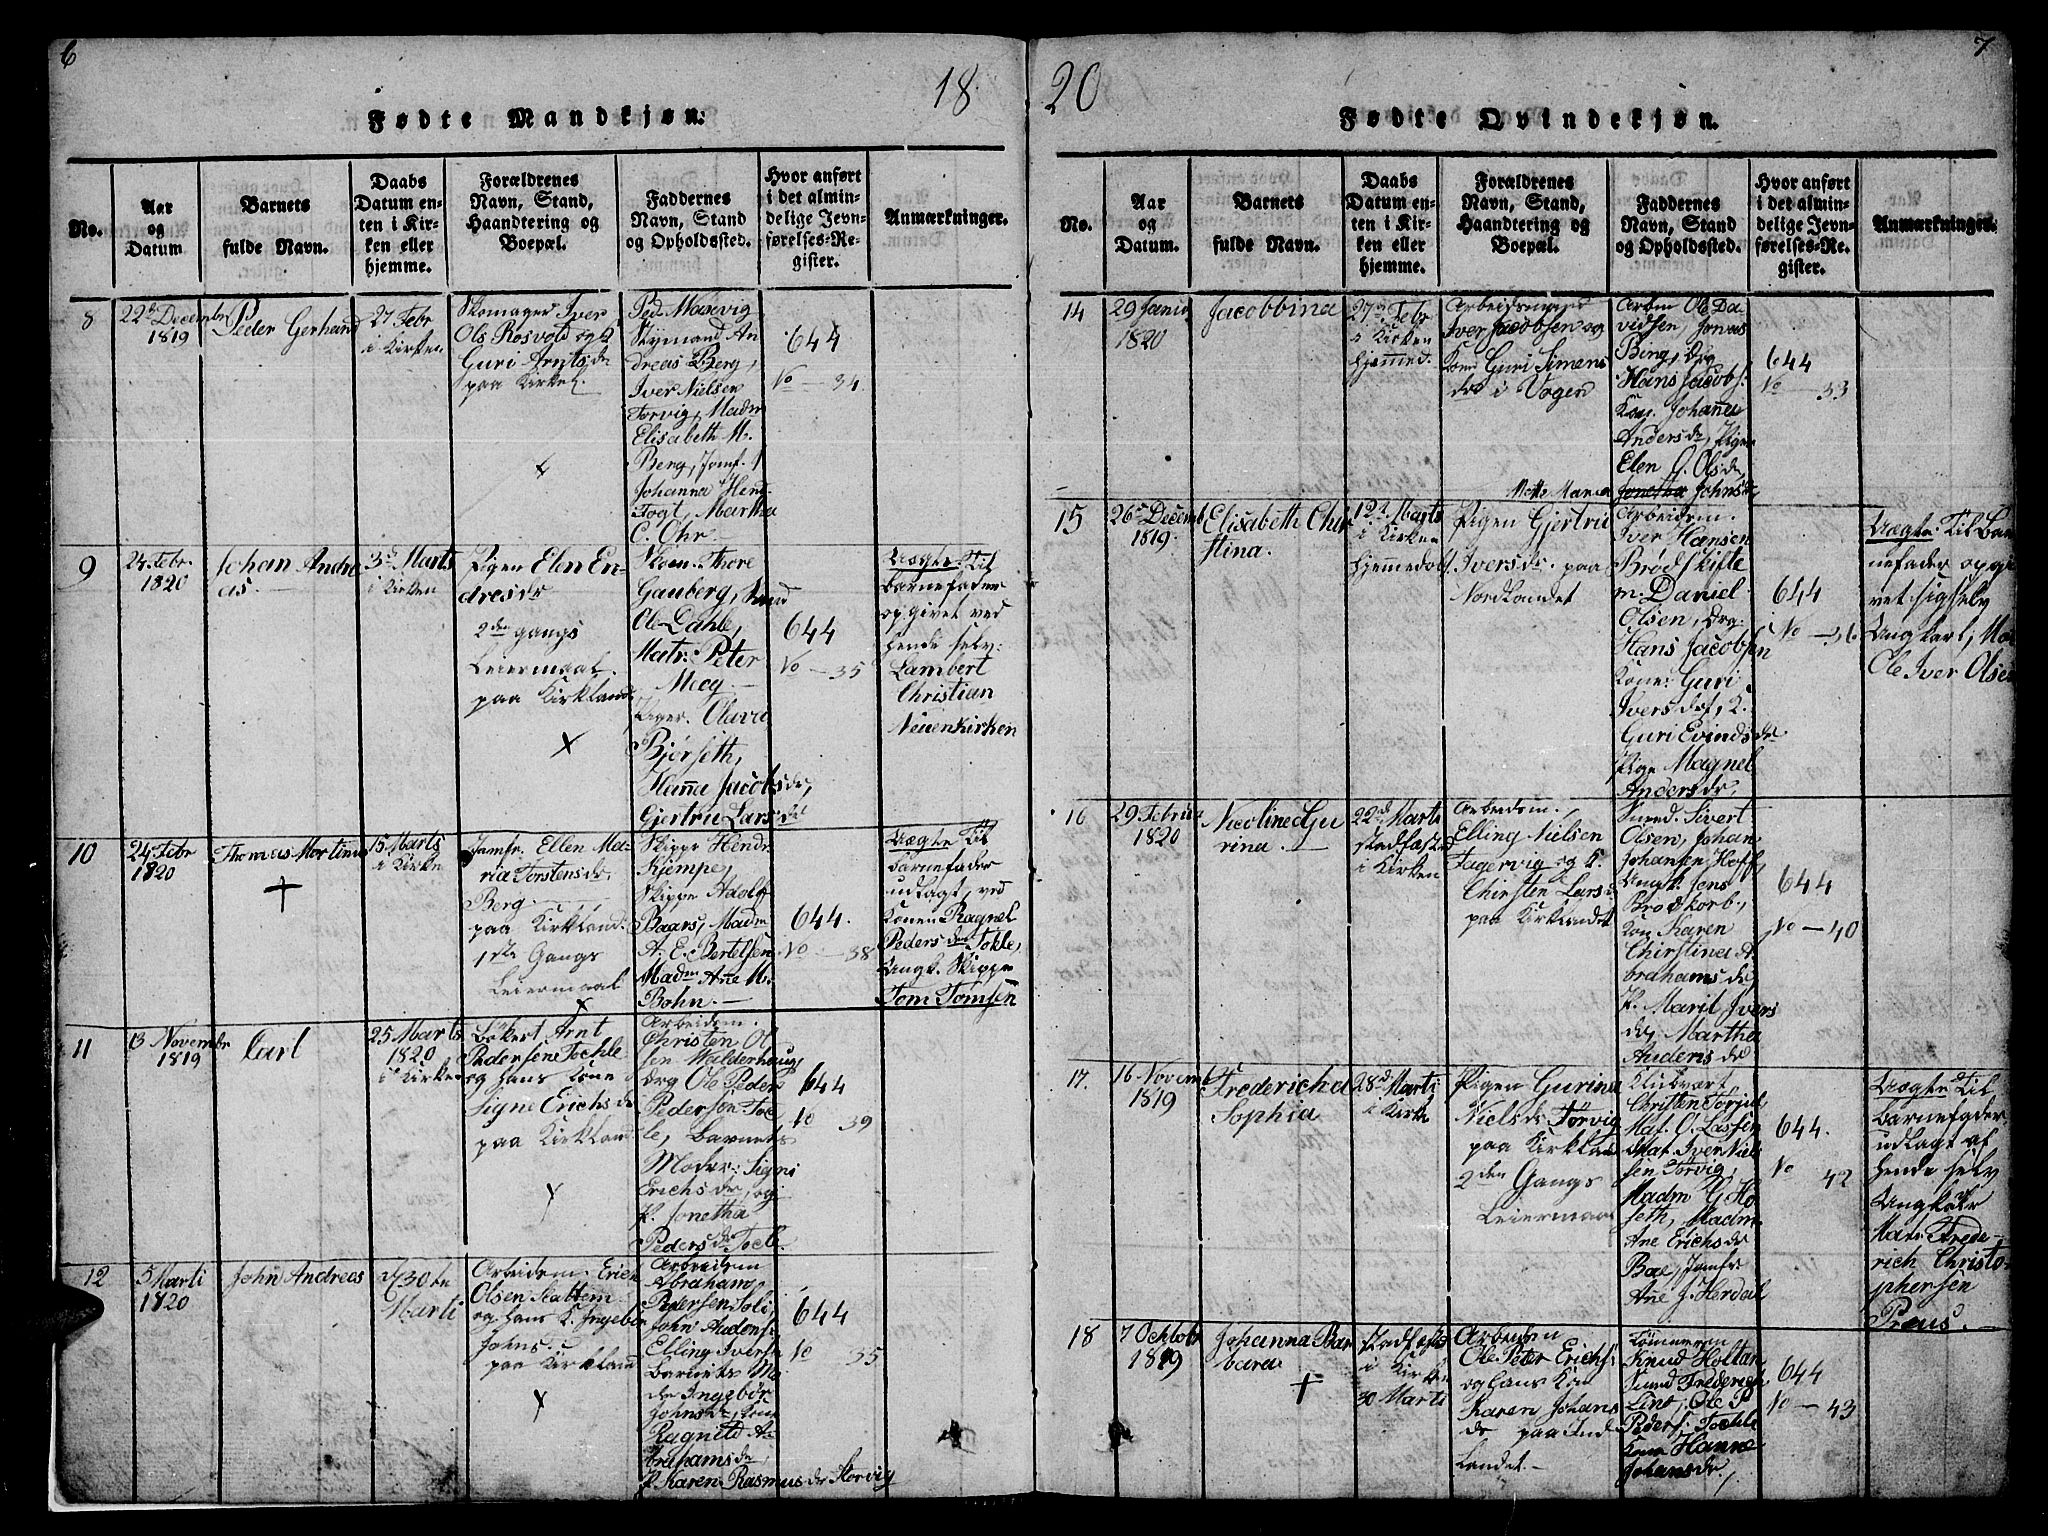 6
18
Fødte Mandkjøn.
No.
Aar
og
Datum
Barnets
fulde Navn.
Daabs
Datum en-
ten i Kir-
ken eller
hjemme.
Forældrenes
Navn, Stand,
Haandtering og
Boepæl.
Faddernes
Navn, Stand
og Opholdssted.
Hvor anført
i det almin-
delige Jevn-
førelses-Re-
gister.
Anmærkninger.
8
22d Decembr
1819
Peter Gerhard
27 Febr
i Kirken
Skomager Iver
Ols Rosvold og K
Guri Arntsdr
paa Kirkel.
Ped. Masevig
Andreas L Berg,
Iver Nielsen
Torvig, Madm
Elisabeth M.
Berg, Jomf.
Johanna Hen.
Fogt, Martha
C. Ohr.
644
No — 34
9
24 Febr.
1820
Johan Andre
as.
3d Marts
i Kirken
Pigen Elen En-
dresdr
2den gangs
Leiermaal.
paa Kirkland
Thore
Gauberg,
Ole Dahle,
Matr: Peter
Moog.
Piger. Olava
Bjørseth,
Hanna Jacobsdr,
Gjertru Larsdr
644
No — 35
Uægte. Til
Barnefader
opgivet ved
hende selv:
Lambert
Christian
Neuenkirken
10
24 Febr
1820
Thomas Martinus
15 Marts
i Kirken
Jomfr. Ellen Ma-
ria Torstensdr.
Berg.
paa Kirkland.
1ste Gangs
Leiermaal
Skippr Hendr
Kjempe,
Skippr Adolf
Baars, Madm
A. C. Bertelsen
Madm Ane M.
Bohn.
644.
No — 38
Uægte Til
Barnefader
udlagt, ved
Konen Ragnel
Pedersdr Tokle,
Ungk. Skippr
Tom Tomsen
11
13 Novembr
1819
Carl
25 Marts
1820
i Kirken
Arnt
Pedersen Tochle
og hans Kone
Signe Erichsdr
paa Kirkland
Arbeidsm.
Christen Ol
sen Walderhaug
drg Ole Peder
Pedersøn Toc
le, Barnets
Moder: Signi
Erichsdr, og
P. Jonetha
Pedersdr Tocle.
644
No 39
12
5 Marti
1820
John Andreas
d. 30te
Marti
Arbeidsm. Erich
Olsen Slattem
og hans K. Ingebor
Johns.
paa Kirkland
Arbeidsm
Abraham
Pedersen Soli,
John Audens.
Elling Ivers
Barnets Mo
de Ingebor
Johnsdr, Kone
Ragnild A
brahamsdr
P Karen Rasmusdr Storvig
644
No 35
20
7
Fødte Qvindekjøn.
No.
Aar
og
Datum.
Barnets
fulde Navn.
Daabs
Datum en-
ten i Kir-
ken eller
hjemme.
Forældrenes
Navn, Stand,
Haandtering og
Boepæl.
Faddernes
Navn, Stand
og Opholdssted.
Hvor anført
i det almin-
delige Jevn-
førelses-Re-
gister.
Anmærkninger.
14
29 Janua
1820
Jacobbina
27d Febr
i Kirken
hjemmed.
Arbeidsmand
Iver Jacobsen og
Kone Guri Simens
dr i Vogen
Arbm Ole Da-
vidsen, Jonas
Bing, Drg
Hans Jacobs.
Kon. Johanna
Andersdr, Pigen
Elen J. Olsdr
Mette Maria Jonetha Johnsdr
644
No — 33
15
26 Decemb
1819.
Elisabeth Chir
stina.
12d Marts
i Kirken
hjemmedøbt
Pigen Gjertru
Iversdr. paa
Nordlandet
Arbeidsm.
Iver Hansen
Brødskifte
m. Daniel
Olsen, Drg.
Hans Jacobsen
Kone: Guri
Iversdr, K.
Guri Evindsdr
Pige Magnel
Andersdr.
644
No — 36
Uægte. Til Bar
nefader opgi
vet sigselv
Ungkarl, Ma
Ole Iver Olsen
16
29 Februa
1820
Nicolinea Gu
rina.
22d Marts
stadfæsted
i Kirken
Arbeidsm.
Elling Nielsen
Fagervig og K.
Chirsten Larsd
paa Kirklandet
Sivert
Olsen, Johan
Johansen Hoff
Ungk. Jens
Brodkorb,
Kon Karen
Chirstina A
brahamsdr
P. Marit Ivers
dr, Martha
Audensdr
644
No — 40
17.
16 Novemb
1819
Fredericha
Sophia
28d Marti
i Kirke
Pigen Gurina
Nielsdr Torvig
paa Kirkland
2den Gangs
Leiermaal
Christen Torjul
Mat. O. Lassen
Mat. Iver Niel
sen Torvig,
Madm G Ho
seth, Madm
Ane Erichsdr
Boe, Jomfr
Ane J. Herdal
644.
No 42
Uægte Til
Barnefader
udlagt af
hende selv
Ungkarl
Matr Frede-
rich Christo-
phersen
Preus.
18
7 Octobr
1819
Johanna Bar
bara
stadfæsted
i Kirken
30 Marti
Arbeidsm
Ole Peter Erichs:
og hans Kon
Karen Johans
dr paa Ind
Landet.
Tømmerm
Knud Holtan
Frederich
Lint, Ole P
Peders. Tochle
Kone Hanne
Johansdr.
644
No — 43